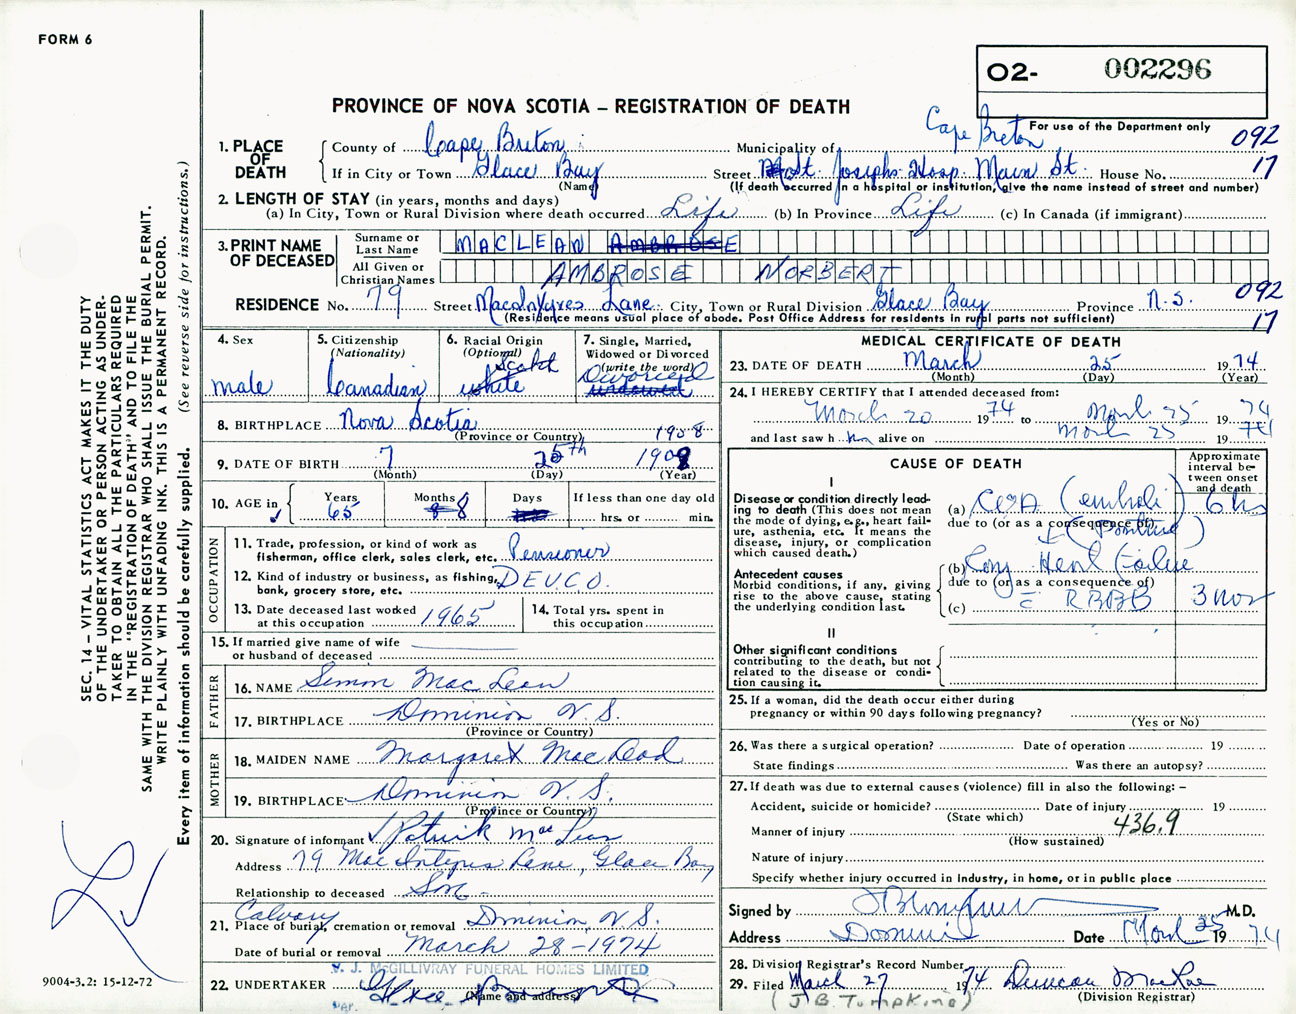 FORM 6
O2- 002296
PROVINCE OF NOVA SCOTIA – REGISTRATION OF DEATH
For use of the Department only
1. PLACE OF DEATH
County of Cape Breton Municipality of Cape Breton 092
If in City or Town Glace Bay Street St. Josephs Hosp. Main St. House No. 17
(Name) (If death occurred in a hospital or institution, give the name instead of street and number)
2. LENGTH OF STAY (in years, months and days)
(a) In City, Town or Rural Division where death occurred Life (b) In Province Life (c) In Canada (if immigrant)
3. PRINT NAME OF DECEASED
Surname or Last Name MACLEAN AMBROSE
All Given or Christian Names AMBROSE NORBERT
RESIDENCE No. 79 Street MacIntyres Lane City, Town or Rural Division Glace Bay Province N.S. 092
(Residence means usual place of abode. Post Office Address for residents in rural parts not sufficient) 17
4. Sex
male
5. Citizenship
(Nationality)
Canadian
6. Racial Origin
(Optional)
Scotch
white
7. Single, Married,
Widowed or Divorced
(write the word)
Divorced
widowed
8. BIRTHPLACE Nova Scotia 1908
(Province or Country)
9. DATE OF BIRTH 7 25th 1908
(Month) (Day) (Year)
10. AGE in
Years Months Days If less than one day old
65 8 8 hrs. or min.
OCCUPATION
11. Trade, profession, or kind of work as
fisherman, office clerk, sales clerk, etc. Pensioner
12. Kind of industry or business, as fishing,
bank, grocery store, etc. DEVCO.
13. Date deceased last worked
at this occupation 1965
14. Total yrs. spent in
this occupation
15. If married give name of wife
or husband of deceased
FATHER
16. NAME Simon Mac Lean
17. BIRTHPLACE Dominion N.S.
(Province or Country)
MOTHER
18. MAIDEN NAME Margaret MacLeod
19. BIRTHPLACE Dominion N.S.
(Province or Country)
20. Signature of informant Patrick MacLean
Address 79 MacIntyres Lane, Glace Bay
Relationship to deceased Son
Calvary
21. Place of burial, cremation or removal Dominion, N.S.
Date of burial or removal March 28-1974
V. J. McGILLIVRAY FUNERAL HOMES LIMITED
22. UNDERTAKER
(Name and address)
PER.
MEDICAL CERTIFICATE OF DEATH
23. DATE OF DEATH March 25 1974
(Month) (Day) (Year)
24. I HEREBY CERTIFY that I attended deceased from:
March 20 1974 to March 25 1974
and last saw him alive on March 25 1974
CAUSE OF DEATH
Approximate interval between onset and death
I
Disease or condition directly leading to death (This does not mean the mode of dying, e.g., heart failure, asthenia, etc. It means the disease, injury, or complication which caused death.)
(a) CVA (emboli) 6 hrs
due to (or as a consequence of)
Antecedent causes
Morbid conditions, if any, giving rise to the above cause, stating the underlying condition last.
(b) Cong Heart Failure
due to (or as a consequence of)
(c) RBBB 3 mos
II
Other significant conditions
contributing to the death, but not related to the disease or condition causing it.
25. If a woman, did the death occur either during
pregnancy or within 90 days following pregnancy?
(Yes or No)
26. Was there a surgical operation? Date of operation 19
State findings Was there an autopsy?
27. If death was due to external causes (violence) fill in also the following: –
Accident, suicide or homicide? Date of injury 19
(State which) 436.9
Manner of injury
(How sustained)
Nature of injury
Specify whether injury occurred in Industry, in home, or in public place
Signed by M.D.
Address Dominion Date March 25 1974
28. Division Registrar's Record Number
29. Filed March 27 1974 Duncan MacRae
(J B. Tompkins) (Division Registrar)
SEC. 14 – VITAL STATISTICS ACT MAKES IT THE DUTY
OF THE UNDERTAKER OR PERSON ACTING AS UNDER-
TAKER TO OBTAIN ALL THE PARTICULARS REQUIRED
IN THE "REGISTRATION OF DEATH" AND TO FILE THE
SAME WITH THE DIVISION REGISTRAR WHO SHALL ISSUE THE BURIAL PERMIT.
WRITE PLAINLY WITH UNFADING INK. THIS IS A PERMANENT RECORD.
Every item of information should be carefully supplied. (See reverse side for instructions.)
9004-3.2: 15-12-72